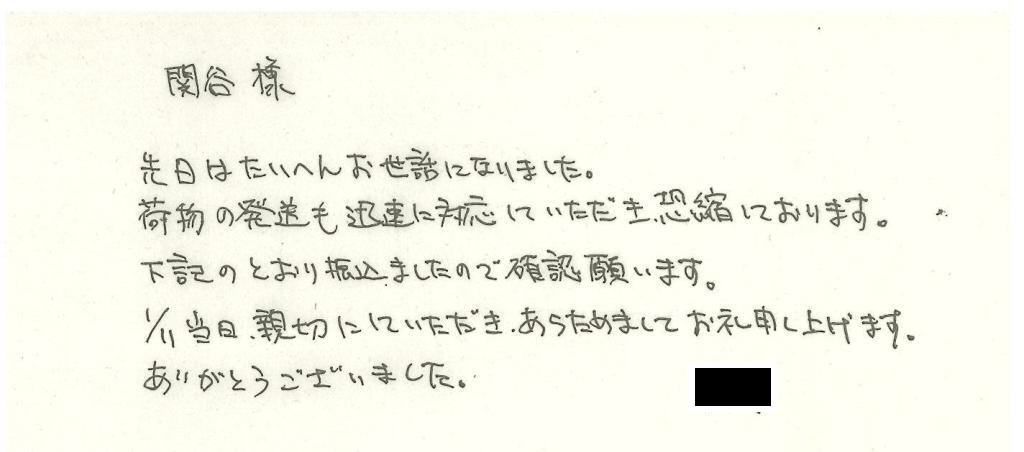 関谷 様
先日はたいへんお世話になりました。
荷物の発送も迅速に対応していただき、恐縮しております。
下記のとおり振込ましたので確認願います。
1/11当日、親切にしていただき、あらためましてお礼申し上げます。
ありがとうございました。